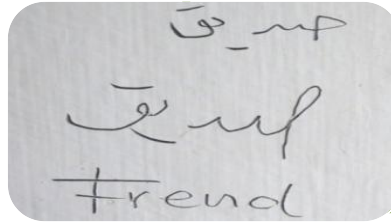 صديق
صديق
Frend